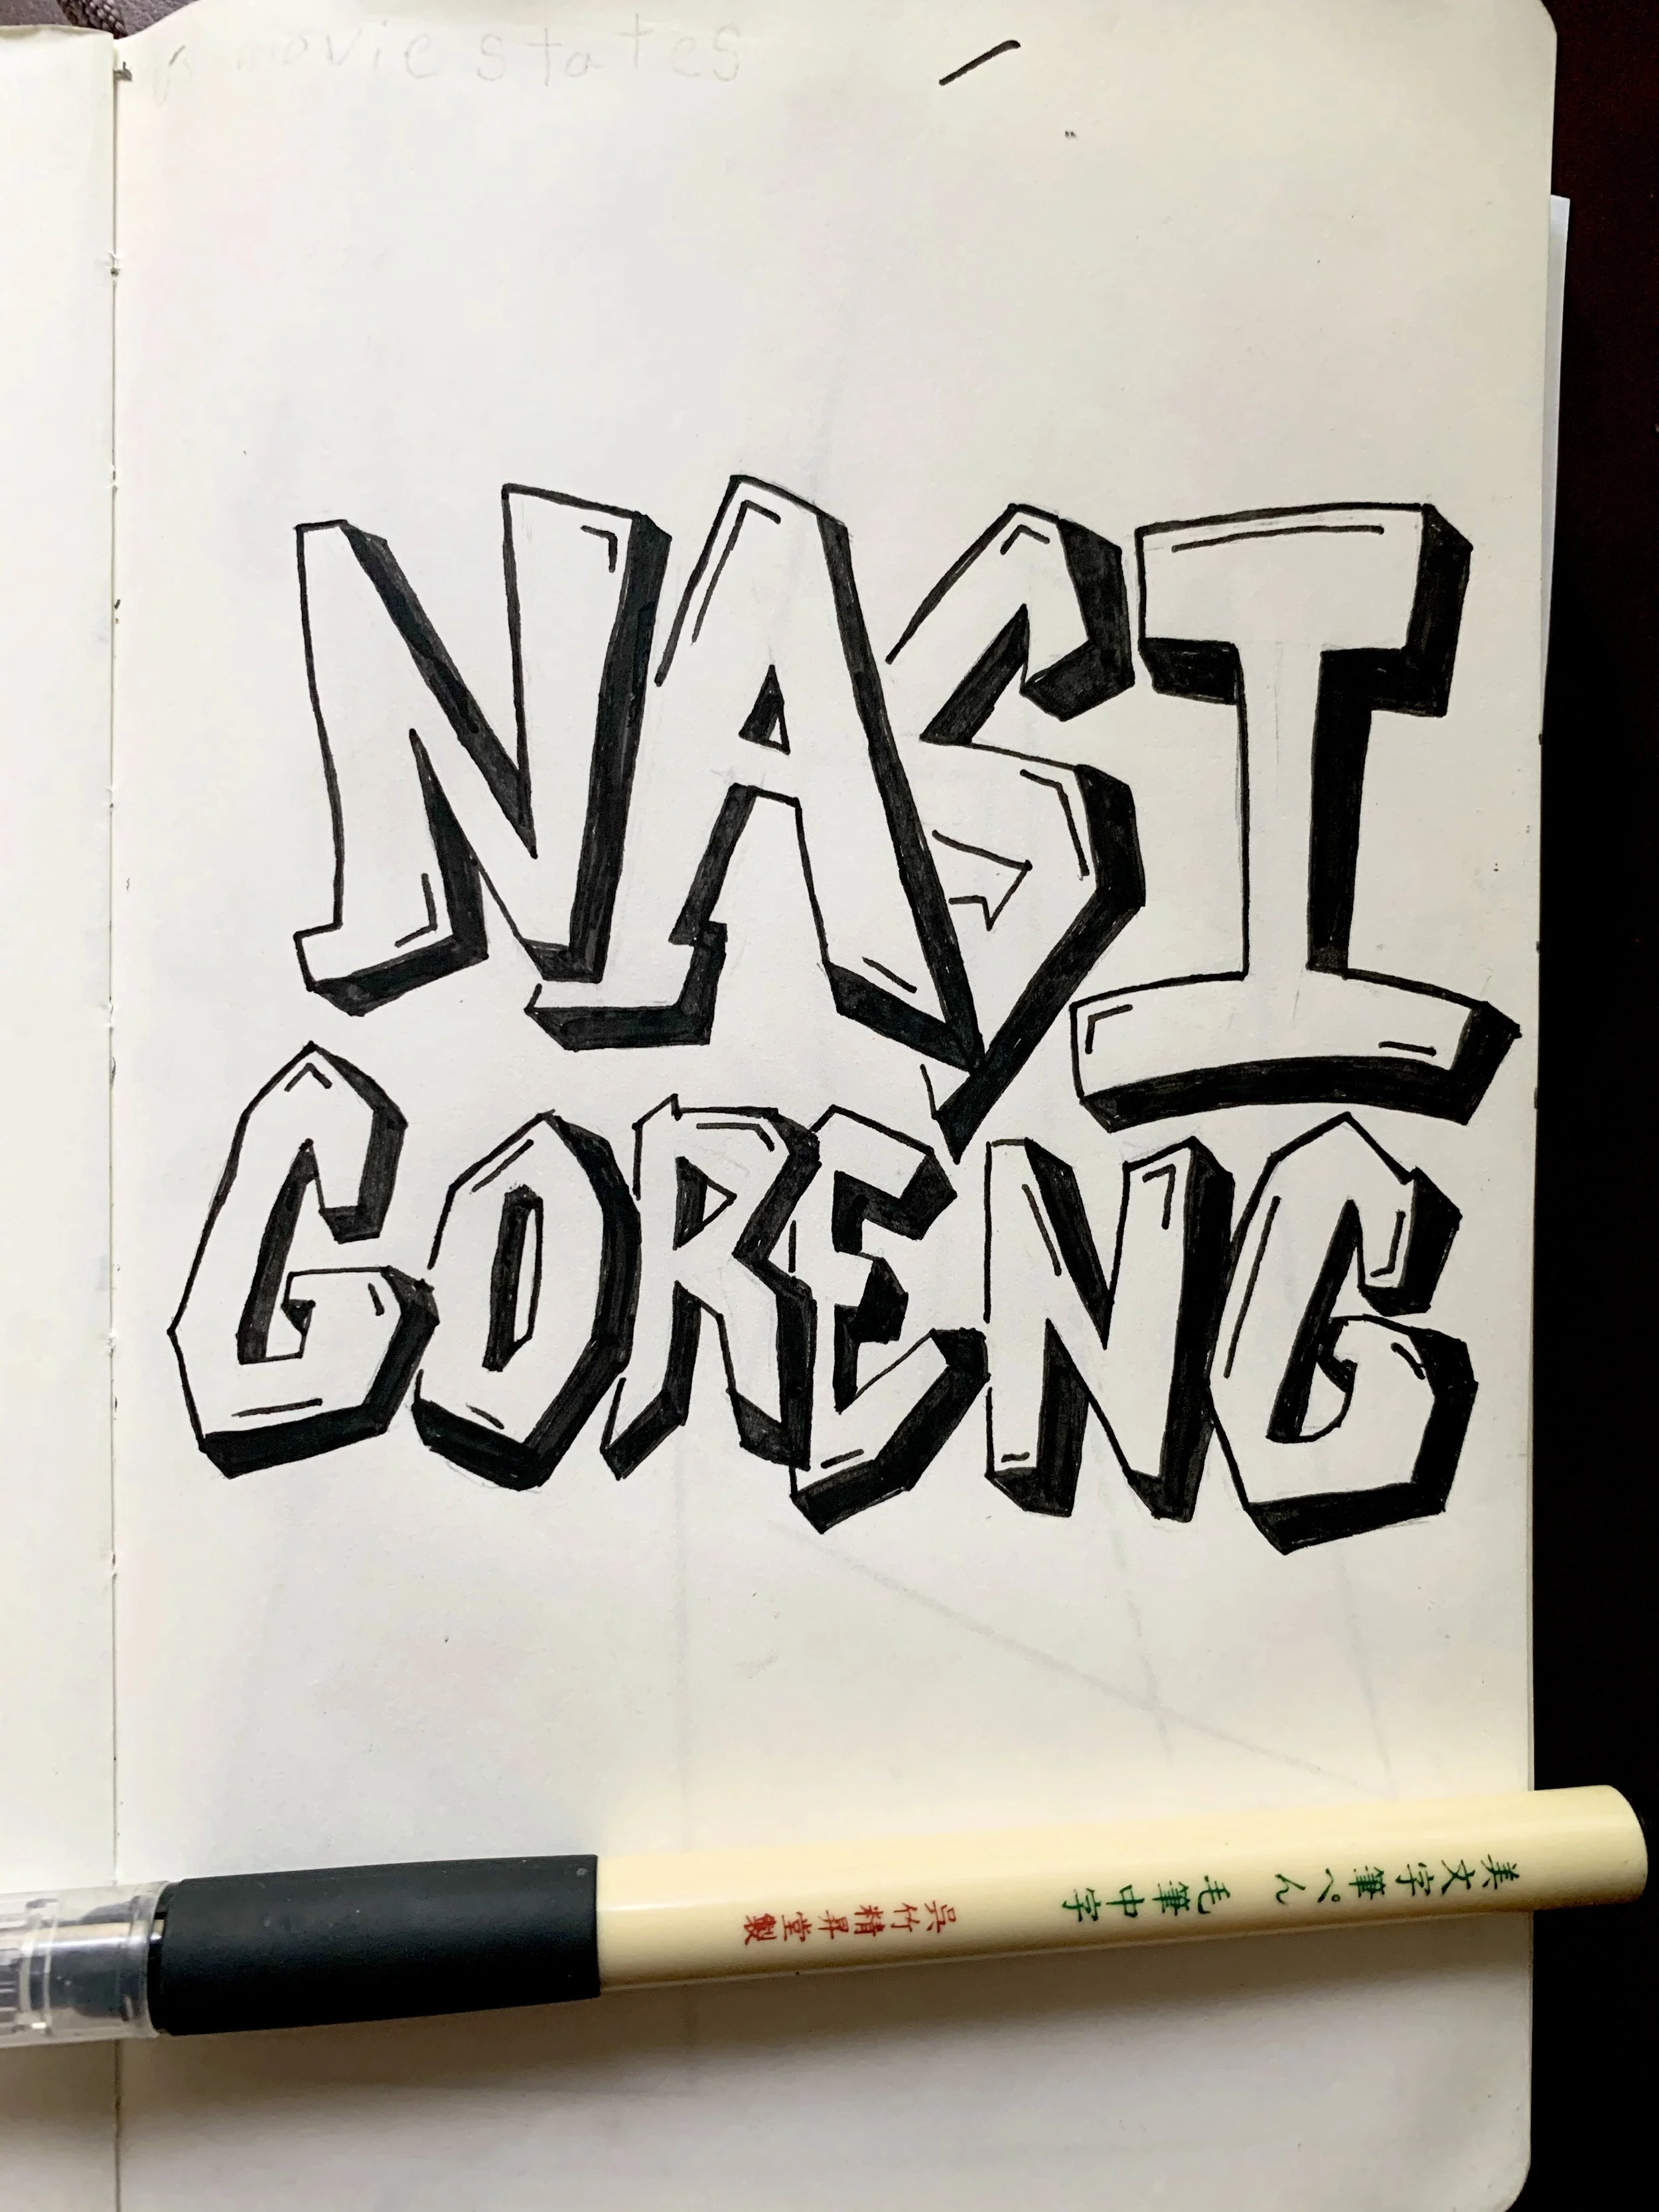 movie states
NASI
GORENG
美文字筆ぺん 毛筆中字
呉竹精昇堂製